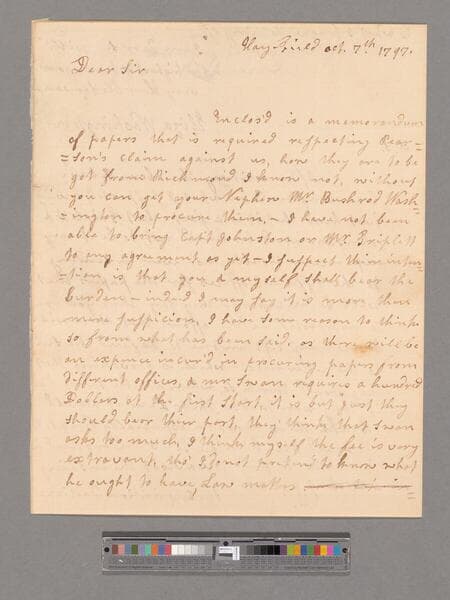 Hay-Field oct. 7th 1797.
Dear Sir
Enclos'd is a memorandum
of papers that is required respecting Pear=
=son's claim against us, how they are to be
got from Richmond I know not, without
you can get your Nephew Mr. Bushrod Wash=
=ington to procure them, - I have not been
able to bring Capt Johnston or Mr. Triplett
to any agreement as yet - I suspect their inten=
=tion is that you & myself shall bear the
burden - indeed I may say it is more than
mere suspicion, I have some reason to think
so from what has been said. as there will be
an expence incur'd in procuring papers from
different offices, & mr. Swan requires a hundred
Dollars at the first start, it is but just they
should bear their part, they think that Swan
asks too much, I think myself the fee is very
extravant, tho' I do not pretend to know what
he ought to have, Law makes